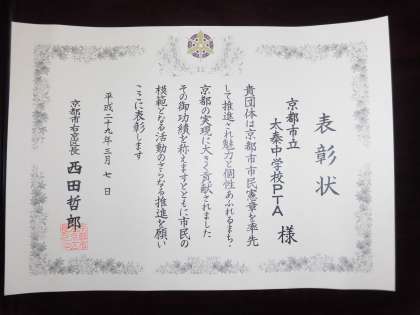 表彰状
京都市立
太秦中学校PTA 様
貴団体は京都市市民憲章を率先
して推進され魅力と個性あふれるまち・
京都の実現に大きく貢献されました
その御功績を称えますとともに市民の
模範となる活動のさらなる推進を願い
ここに表彰します
平成二十九年三月七日
京都市右京区長 西田哲郎